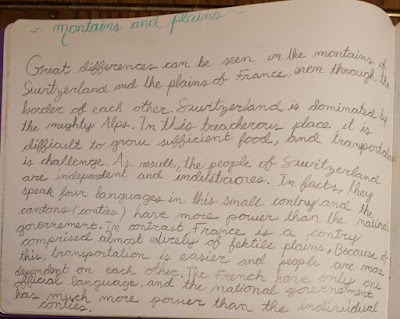 montains and plains
Great differences can be seen in the montains of
Suwitzerland and the plains of France, even through the
border of each other. Suwitzerland is dominated by
the mighty Alps. In this treacherous place, it is
difficult to grow sufficient food, and transportation
is challenge. As result, the people of Suwitzerland
are independent and industriores. In facts, they
speak four languages in this small contry and the
cantons (conties) have more power than the national
governement. In contrast France is a contry
comprised almost of fektile plains. Because of
this, transportation is easier and people are more
dependent on each other. The French have only one
official language, and the national governement
has much more power than the individual
conties.